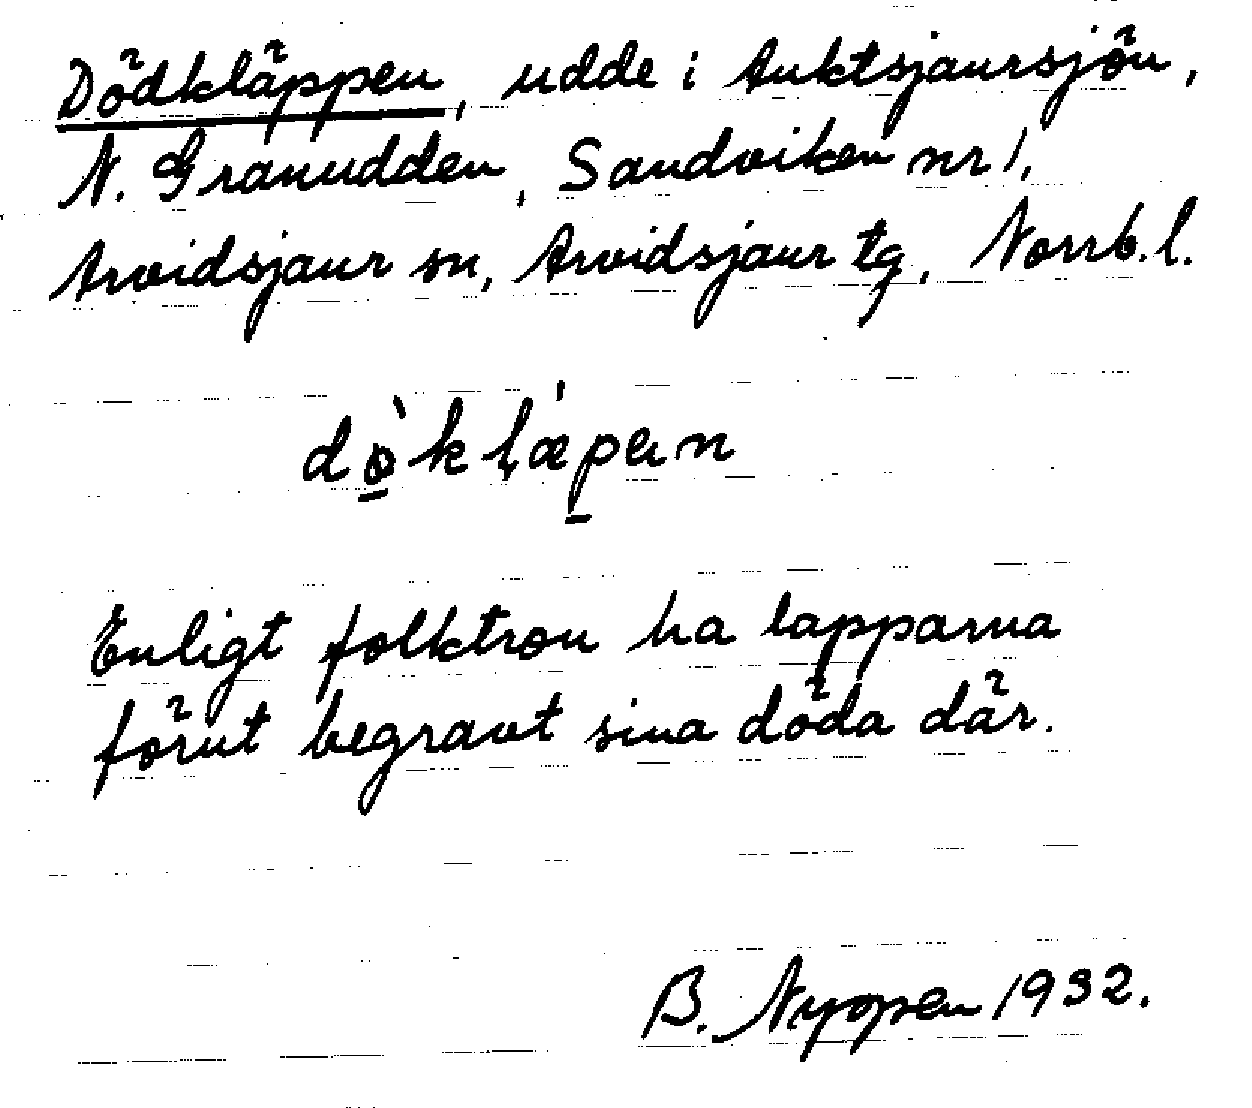 Dödkläppen, udde i Auktsjaursjön,
N. Granudden, Sandviken nr 1,
Arvidsjaur sn, Arvidsjaur tg, Norrb.l.
dö̀klä́pen
Enligt folktron ha lapparna
förut begravt sina döda där.
B. 1932.